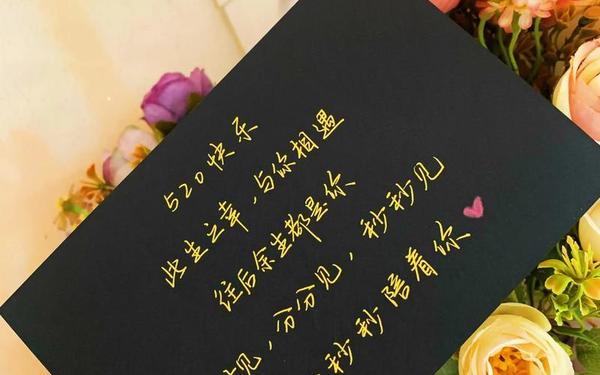 520快乐
此生之幸，与你相遇
往后余生都是你
见，分分见，秒秒见
秒秒陪着你